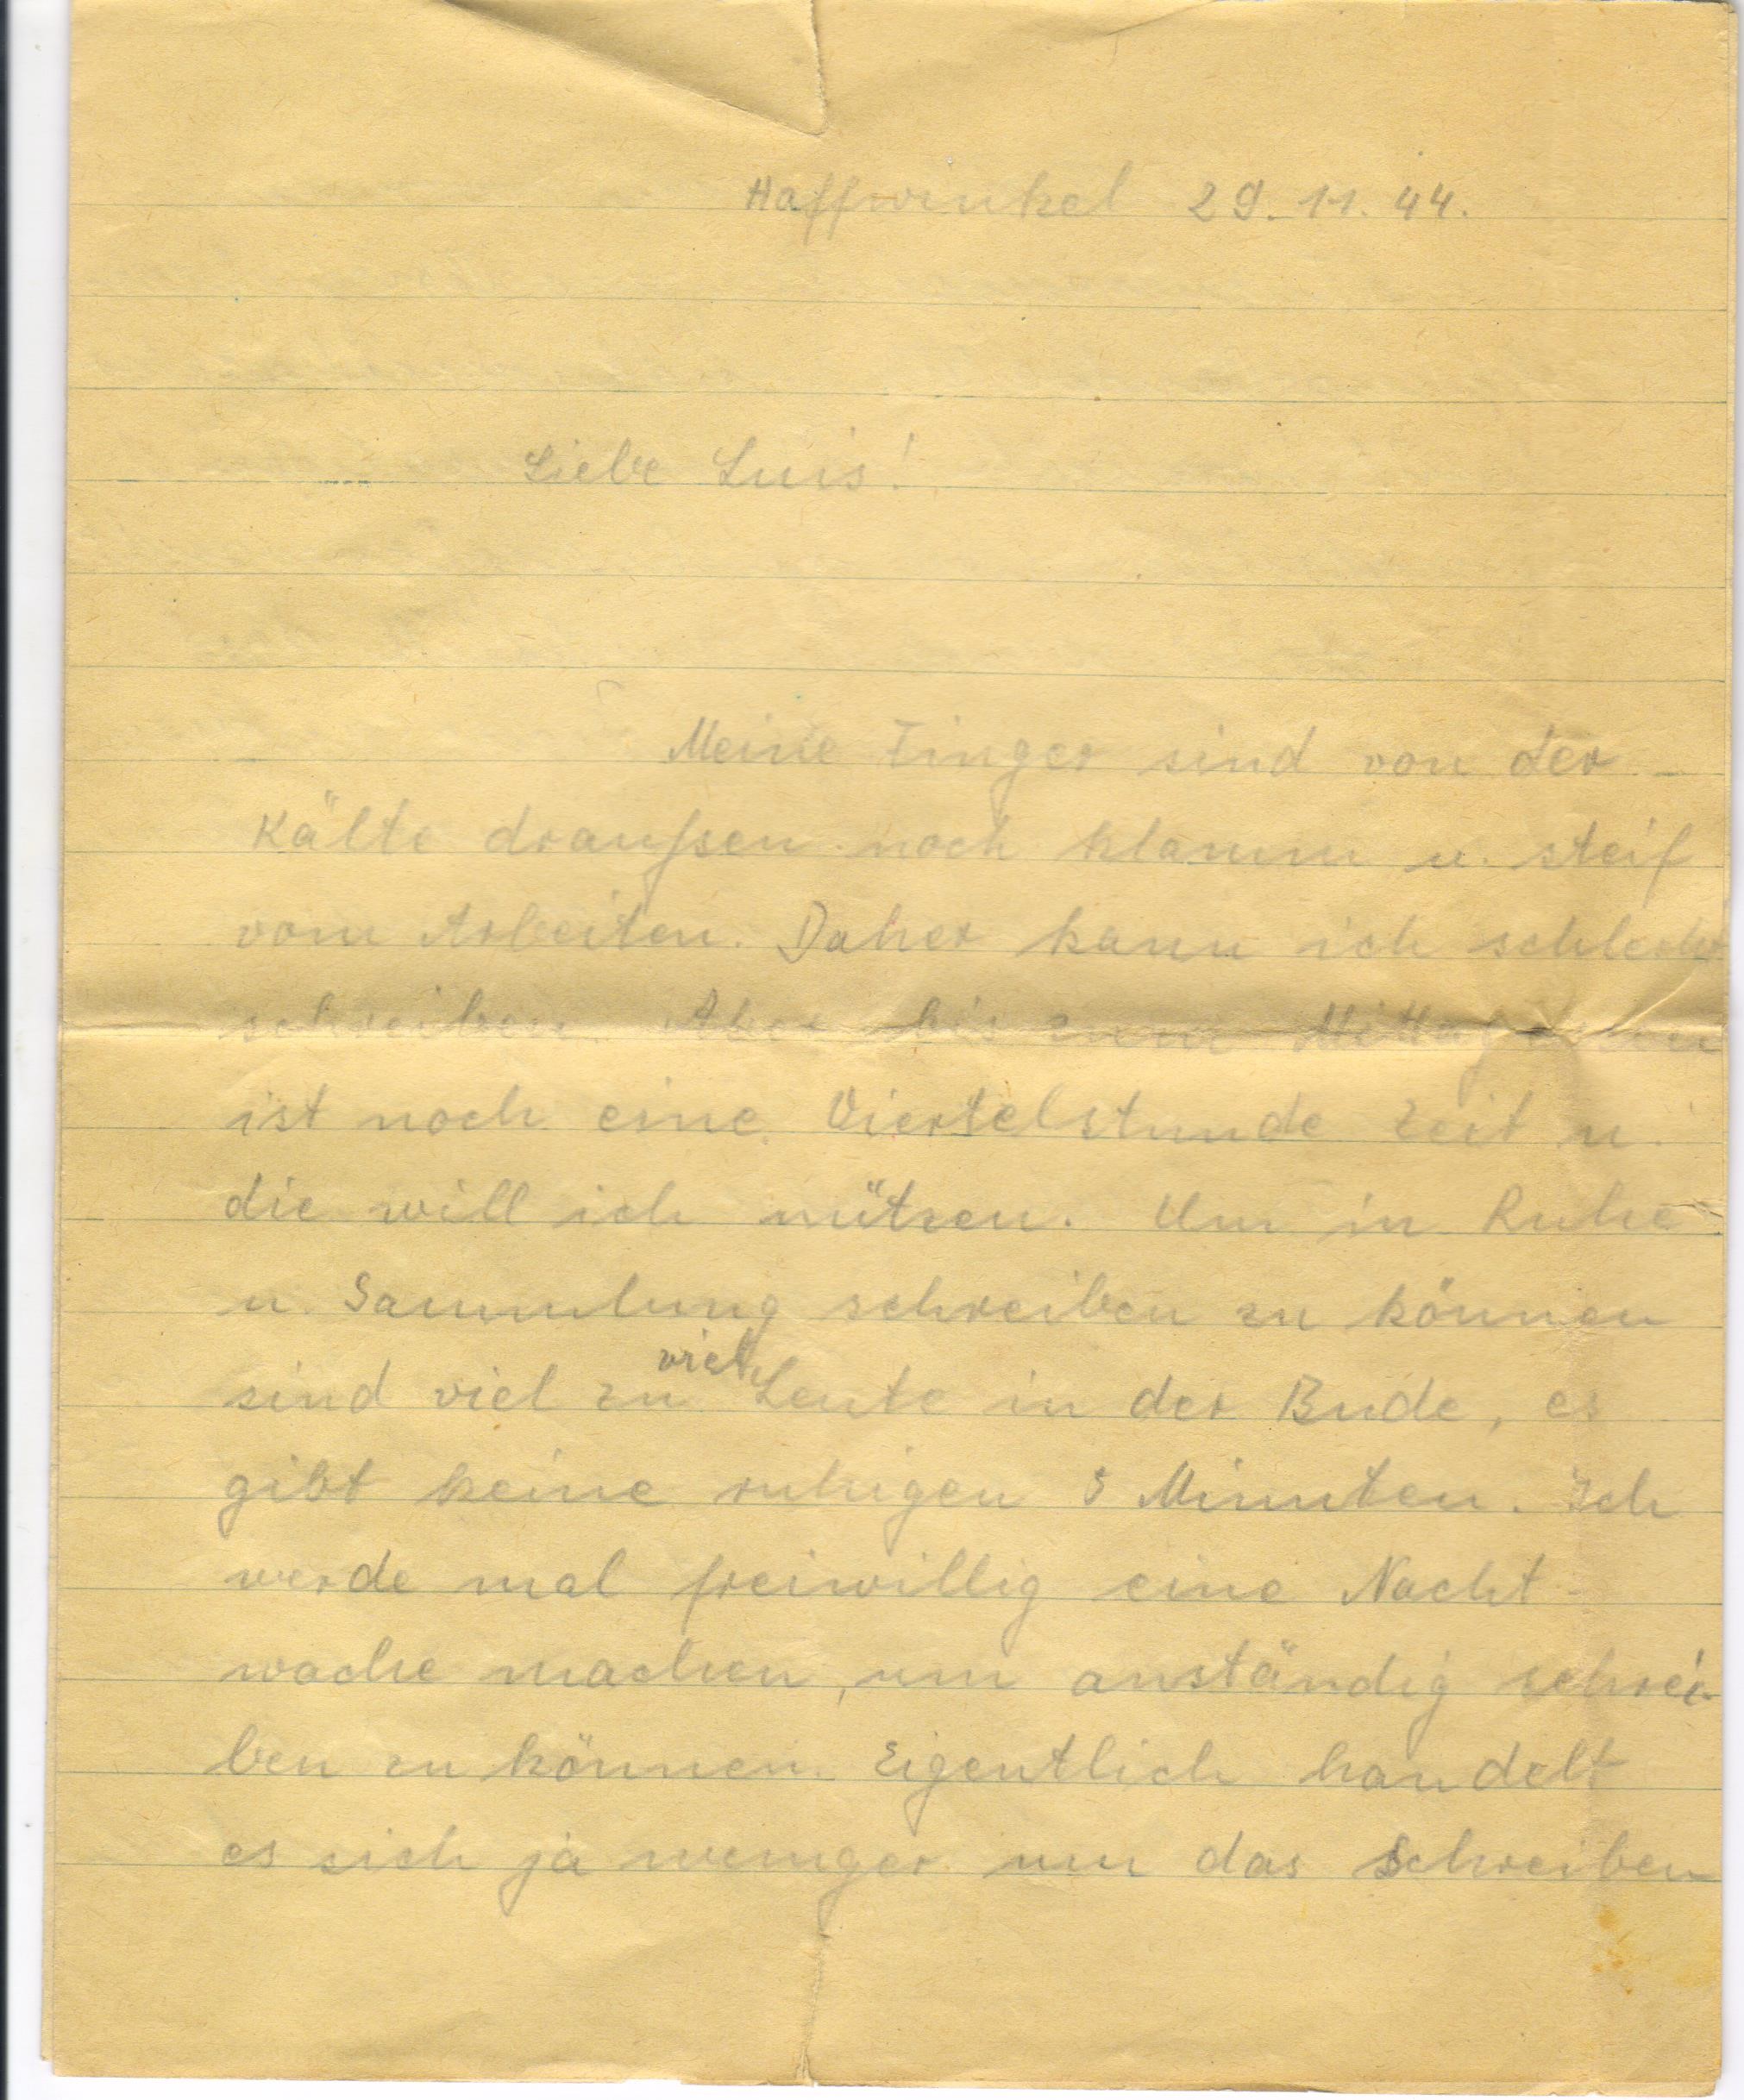 Haffwinkel 29. 11. 44.
Liebe Luis!
Meine Finger sind von der
Kälte draußen noch klamm u. steif
vom Arbeiten. Daher kann ich schlecht
schreiben. Aber bis zum
ist noch eine Viertelstunde Zeit u.
die will ich nützen. Um in Ruhe
u. Sammlung schreiben zu können
sind viel zu viel Leute in der Bude, es
gibt keine ruhigen 5 Minuten. Ich
werde mal freiwillig eine Nacht-
wache machen, um anständig schrei-
ben zu können. Eigentlich handelt
es sich ja weniger um das Schreiben